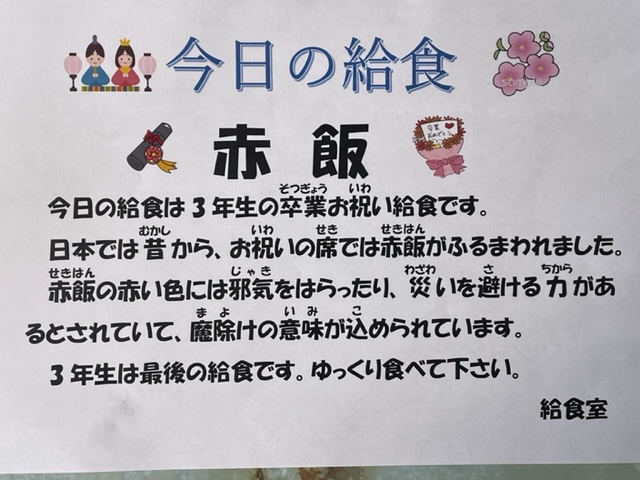 今日の給食
赤飯
今日の給食は3年生の卒業お祝い給食です。
日本では昔から、お祝いの席では赤飯がふるまわれました。
赤飯の赤い色には邪気をはらったり、災いを避ける力があ
るとされていて、魔除けの意味が込められています。
3年生は最後の給食です。ゆっくり食べて下さい。
給食室